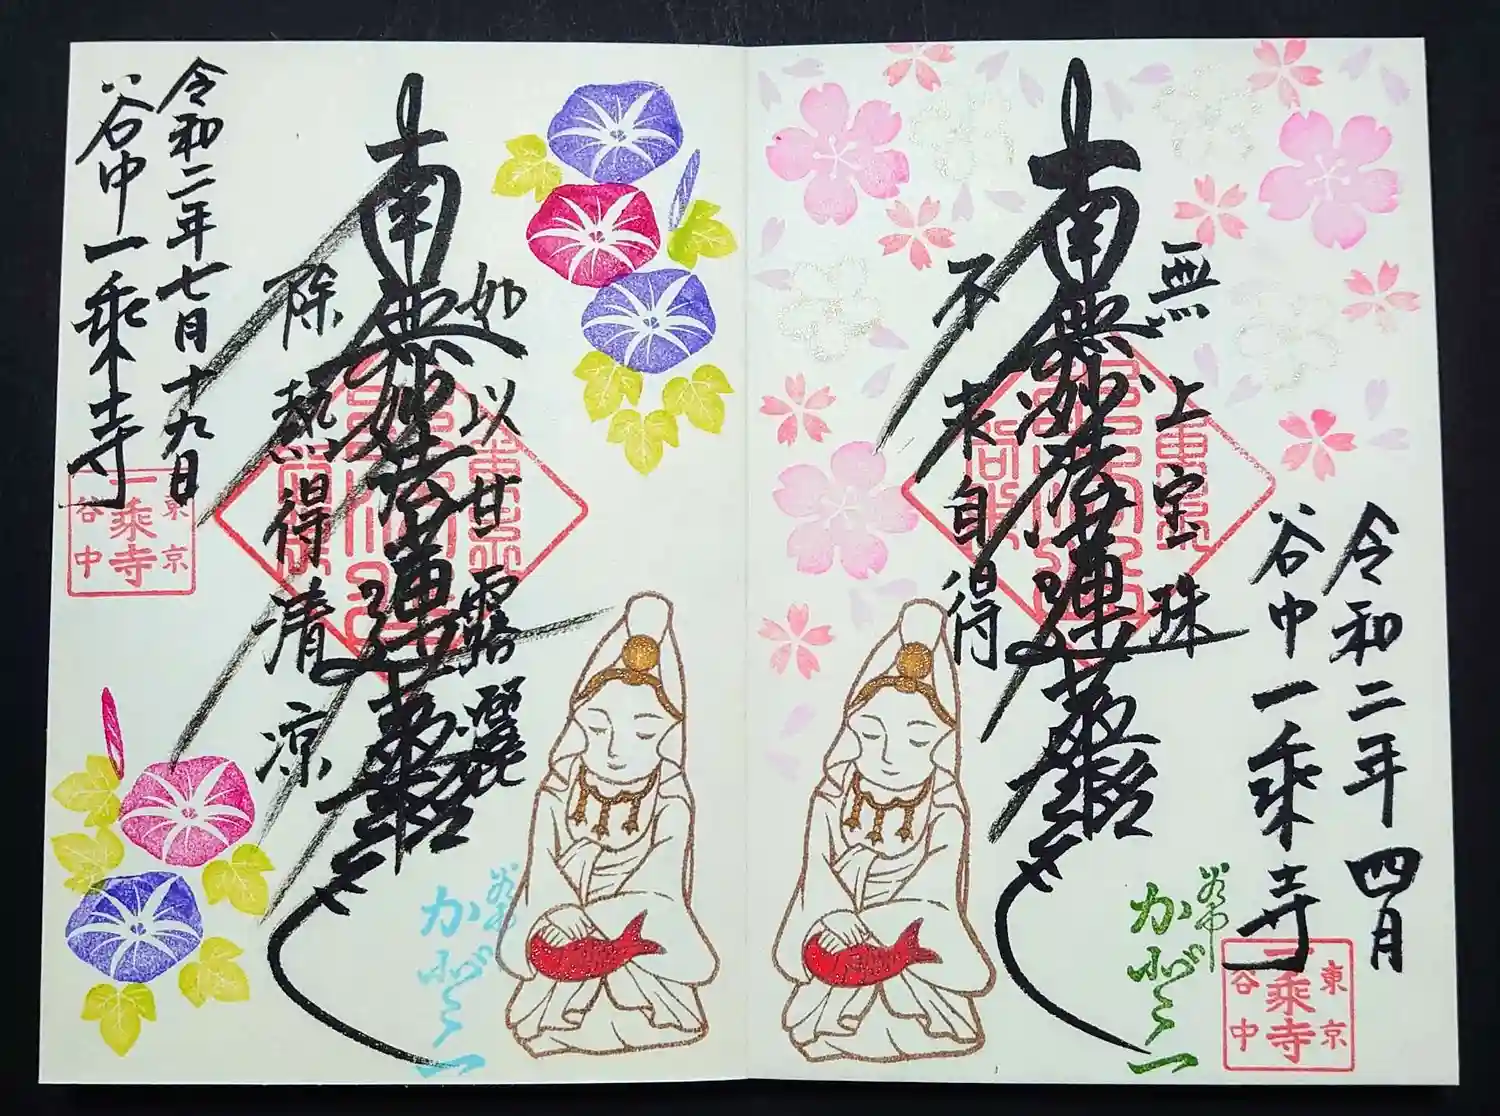 無上宝珠
南無妙法蓮華経
不求自得
令和二年四月
谷中一乗寺
東京
一乗寺
谷中
かんのん
如以甘露灑
南無妙法蓮華経
除熱得清涼
令和二年七月十九日
谷中一乗寺
東京
一乗寺
谷中